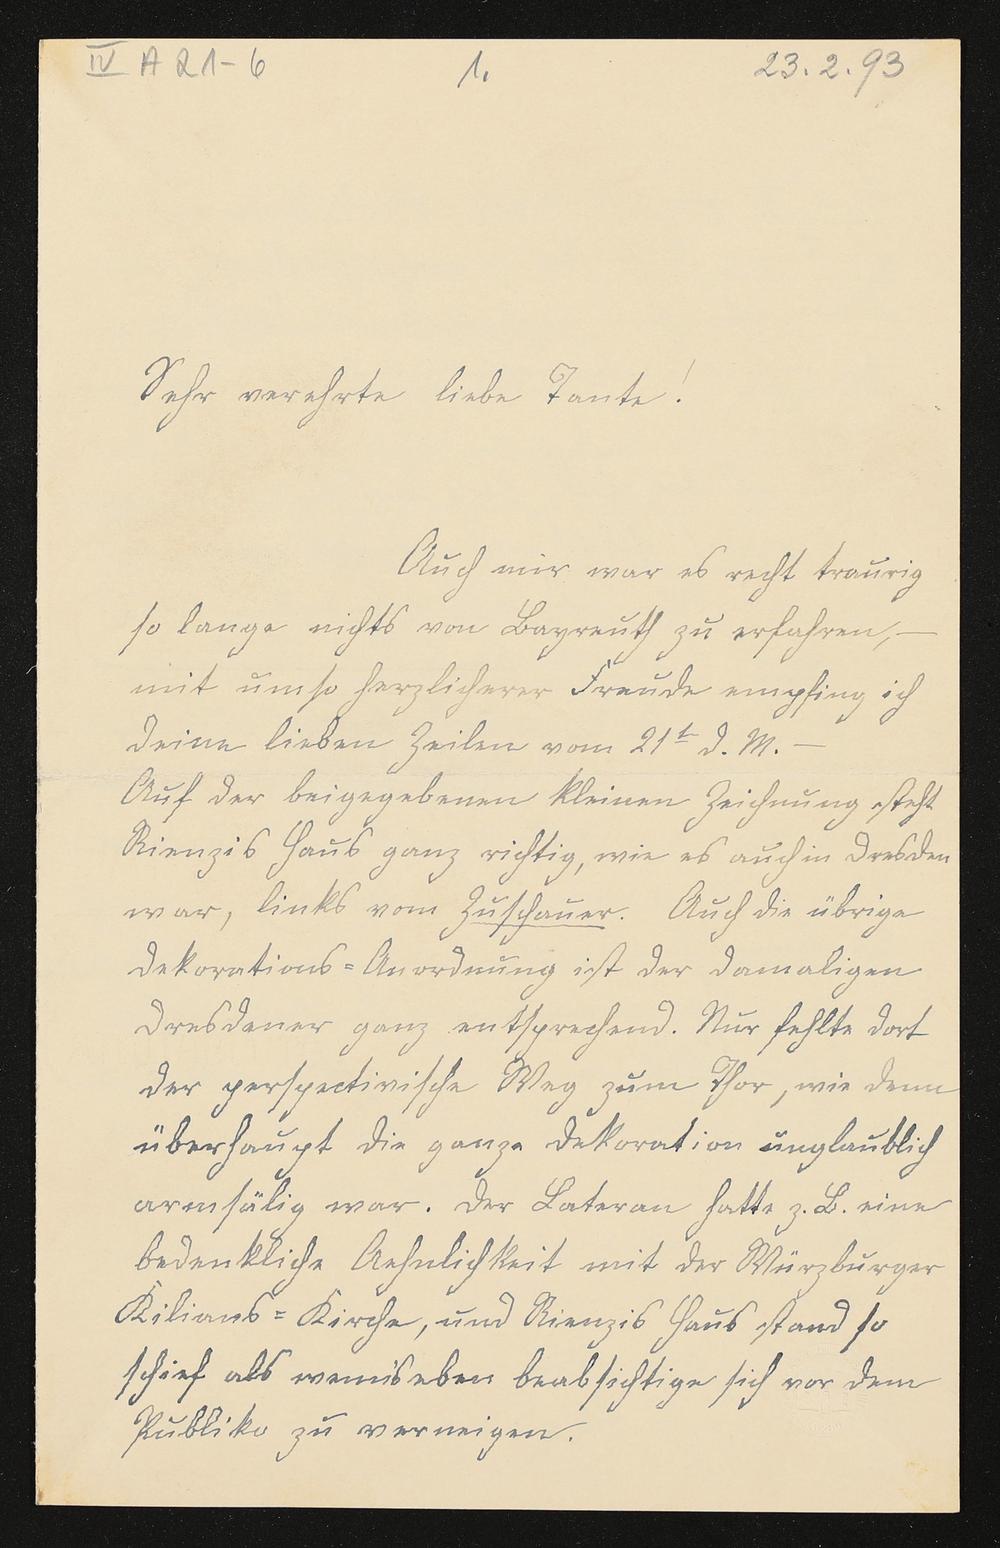 IV A 21-6
1.
23.2.93
Sehr verehrte liebe Tante!
Auch mir war es recht traurig
so lange nichts von Bayreuth zu erfahren,—
mit umso herzlicherer Freude empfing ich
Deine lieben Zeilen vom 21t d. M. —
Auf der beigegebenen kleinen Zeichnung steht
Rienzis Haus ganz richtig, wie es auch in Dresden
war, links vom Zuschauer. Auch die übrige
Dekorations=Anordnung ist der damaligen
Dresdener ganz entsprechend. Nur fehlte dort
der perspectivische Weg zum Thor, wie denn
überhaupt die ganze Dekoration unglaublich
armsälig war. Der Lateran hatte z. B. eine
bedenkliche Aehnlichkeit mit der Würzburger
Kilians=Kirche, und Rienzis Haus stand so
schief als wenn's eben beabsichtige sich vor dem
Publiko zu verneigen.